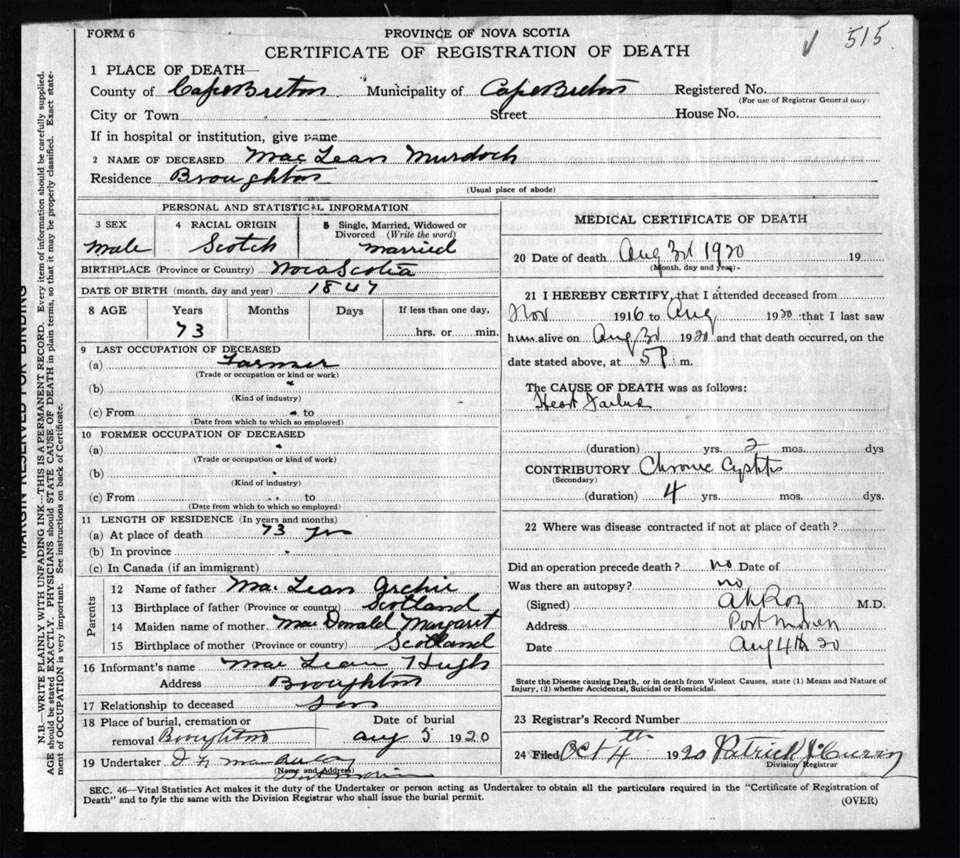 FORM 6
PROVINCE OF NOVA SCOTIA
✓ 515
CERTIFICATE OF REGISTRATION OF DEATH
1 PLACE OF DEATH—
County of Cape Breton Municipality of Cape Breton Registered No.
(For use of Registrar General only)
City or Town Street House No.
If in hospital or institution, give name
2 NAME OF DECEASED Mac Lean Murdoch
Residence Broughton
(Usual place of abode)
PERSONAL AND STATISTICAL INFORMATION
3 SEX 4 RACIAL ORIGIN 5 Single, Married, Widowed or
Divorced (Write the word)
Male Scotch married
BIRTHPLACE (Province or Country) Nova Scotia
DATE OF BIRTH (month, day and year) 1847
8 AGE Years Months Days If less than one day,
73 hrs. or min.
9 LAST OCCUPATION OF DECEASED
(a) Farmer
(Trade or occupation or kind or work)
(b)
(Kind of industry)
(c) From to
(Date from which to which so employed)
10 FORMER OCCUPATION OF DECEASED
(a)
(Trade or occupation or kind of work)
(b)
(Kind of industry)
(c) From to
(Date from which to which so employed)
11 LENGTH OF RESIDENCE (In years and months)
(a) At place of death 73 yrs
(b) In province
(c) In Canada (if an immigrant)
Parents
12 Name of father Mac Lean Archie
13 Birthplace of father (Province or country) Scotland
14 Maiden name of mother Mac Donald Margaret
15 Birthplace of mother (Province or country) Scotland
16 Informant's name Mac Lean Hugh
Address Broughton
17 Relationship to deceased Son
18 Place of burial, cremation or Date of burial
removal Broughton Aug 5 1920
19 Undertaker
(Name and Address)
MEDICAL CERTIFICATE OF DEATH
20 Date of death Aug 3d 1920 19
(Month, day and year)
21 I HEREBY CERTIFY, that I attended deceased from
Nov 1916 to Aug 1920 that I last saw
him alive on Aug 3d 1920 and that death occurred, on the
date stated above, at 5 P. m.
The CAUSE OF DEATH was as follows:
Heart Failure
(duration) yrs. 2 mos. dys
CONTRIBUTORY Chronic Cystitis
(Secondary)
(duration) 4 yrs. mos. dys.
22 Where was disease contracted if not at place of death?
Did an operation precede death? no Date of
Was there an autopsy? no
(Signed) M.D.
Address Port Morien
Date Aug 4th 20
State the Disease causing Death, or in death from Violent Causes, state (1) Means and Nature of
Injury, (2) whether Accidental, Suicidal or Homicidal.
23 Registrar's Record Number
24 Filed Oct 4th 1920 Patrick J
Division Registrar
SEC. 46—Vital Statistics Act makes it the duty of the Undertaker or person acting as Undertaker to obtain all the particulars required in the "Certificate of Registration of
Death" and to fyle the same with the Division Registrar who shall issue the burial permit.
(OVER)
MARGIN RESERVED FOR BINDING
N.B.—WRITE PLAINLY WITH UNFADING INK—THIS IS A PERMANENT RECORD. Every item of information should be carefully supplied.
AGE should be stated EXACTLY. PHYSICIANS should STATE CAUSE OF DEATH in plain terms, so that it may be properly classified. Exact state-
ment of OCCUPATION is very important. See instructions on back of Certificate.